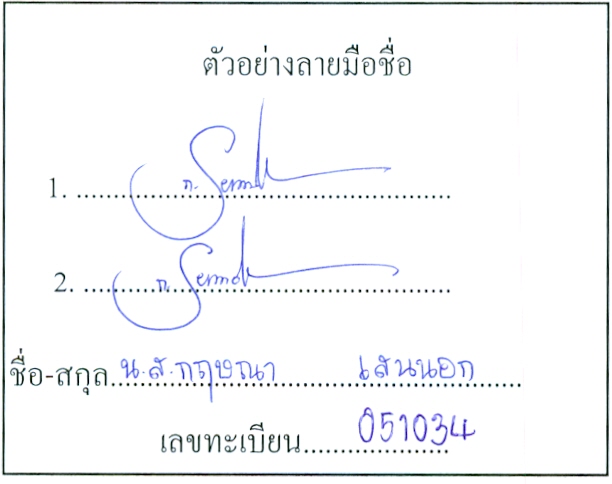 ตัวอย่างลายมือชื่อ
1. ก.
2. ก.
ชื่อ-สกุล น.ส.กฤษณา เสนนอก
เลขทะเบียน 051034